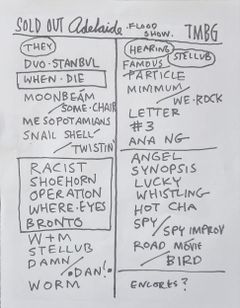 SOLD OUT Adelaide .FLOOD SHOW. TMBG
THEY
DUO-STANBUL
WHEN-DIE
MOONBEAM
/SOME-CHAIR
MESOPOTAMIANS
SNAIL SHELL
/TWISTIN'
RACIST
SHOEHORN
OPERATION
WHERE-EYES
BRONTO
W+M
STELLUB
DAMN
/•DAN!•
WORM
HEARING
FAMOUS STELLUB
PARTICLE
MINIMUM
/WE-ROCK
LETTER
#3
ANA NG
ANGEL
SYNOPSIS
LUCKY
WHISTLING
HOT CHA
SPY
/SPY IMPROV
ROAD MOVIE
/BIRD
ENCORES?